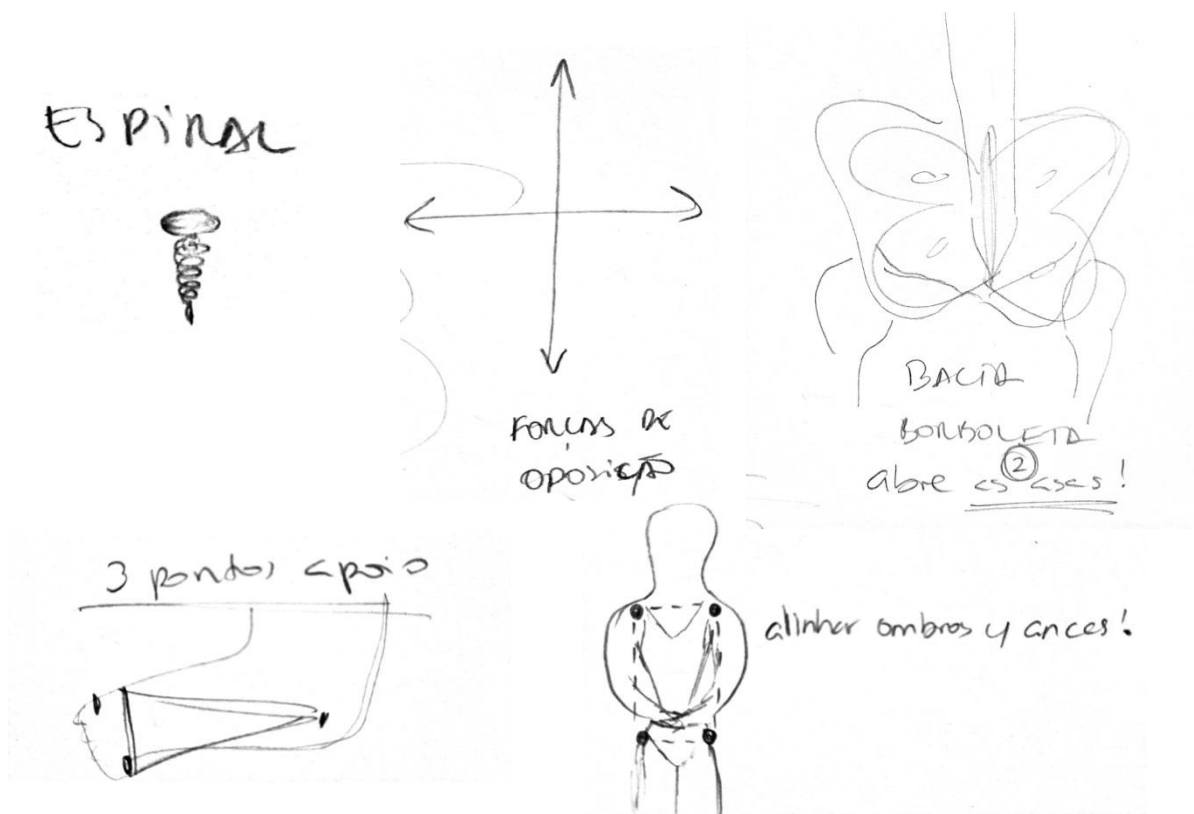 ESPIRAL
FORÇAS DE
OPOSIÇÃO
BACIA
BORBOLETA
abre as 2 asas!
3 pontos apoio
alinhar ombros y ancas!